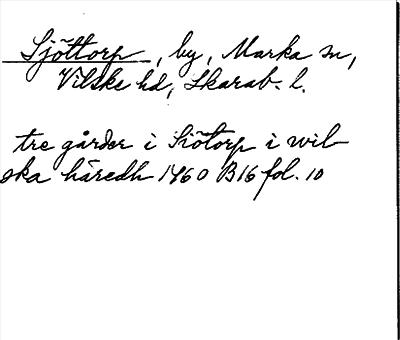 Sjöttorp, by, Marka sn,
Vilske hd, Skarab. l.
tre gårder i Siötorp i wil-
ska häredh 1460 B16 fol. 10